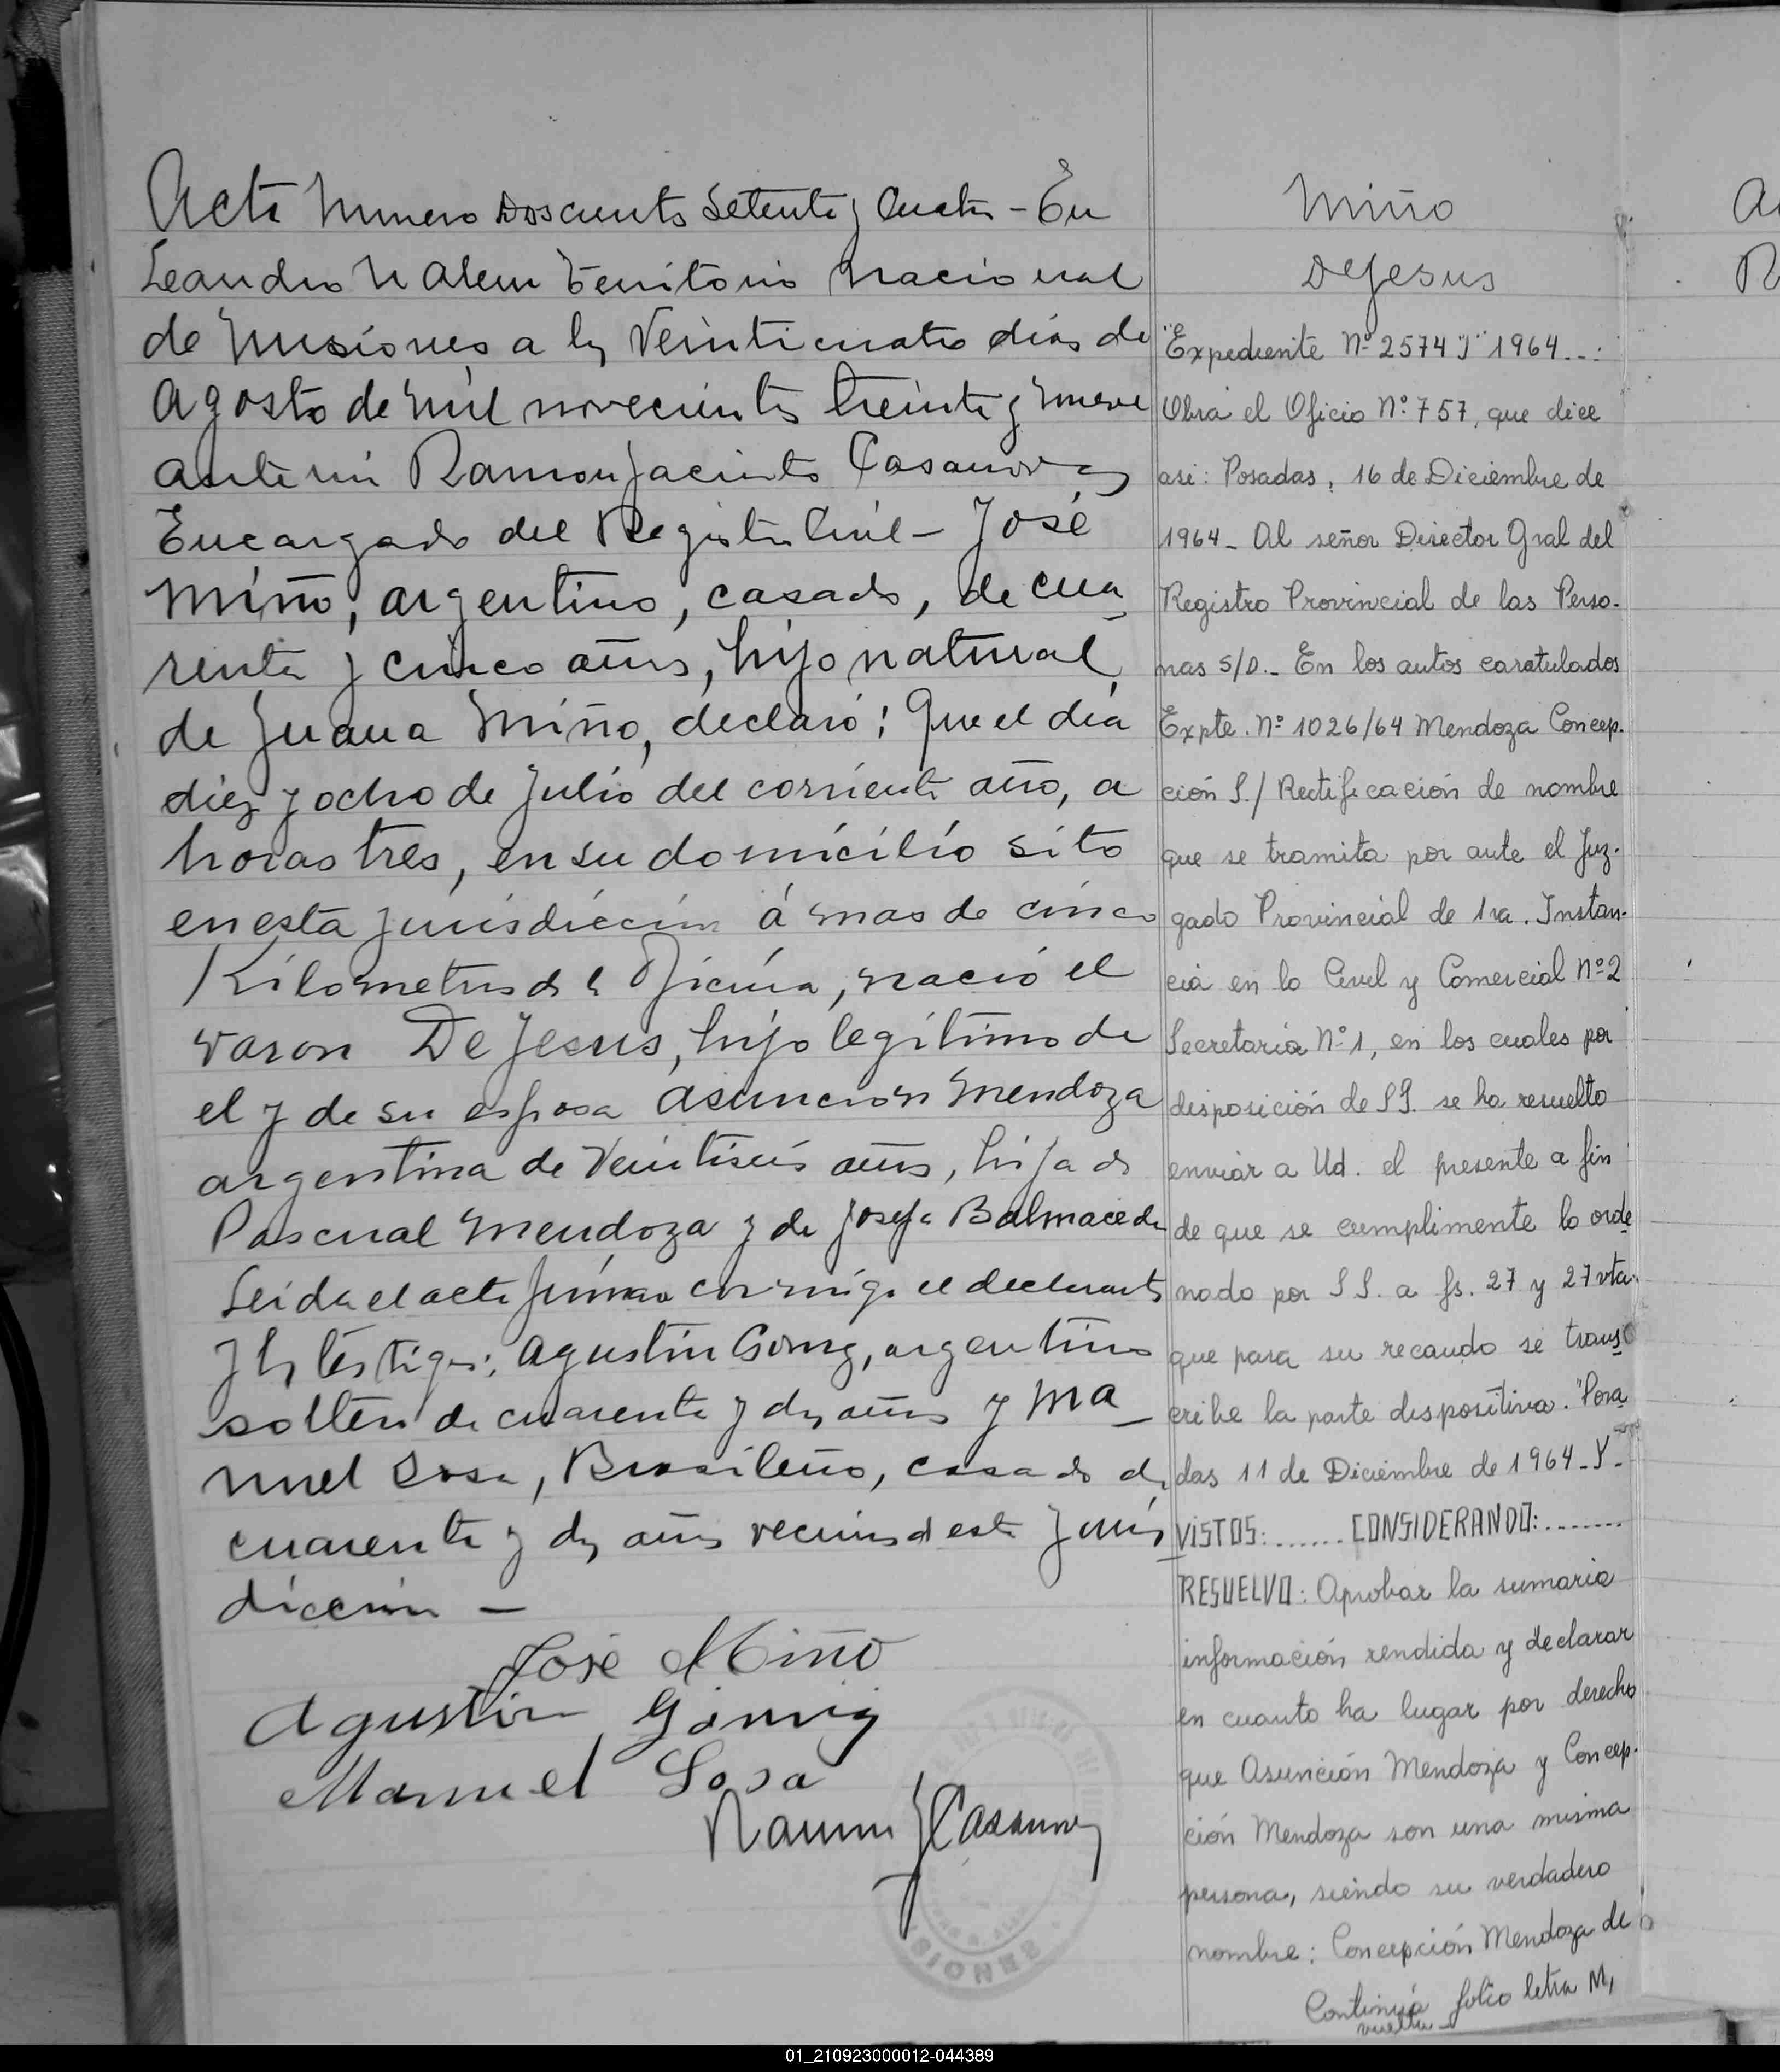 Acta Numero Doscientos Setenta y Cuatro - En
Leandro N Alem Territorio Nacional
de Misiones a los Veinticuatro días de
Agosto de Mil novecientos treinta y nueve
ante mi Ramon Jacinto Casanova
Encargado del Registro Civil - José
Miño, argentino, casado, de cua
renta y cinco años, hijo natural
de Juana Miño, declaró: Que el día
diez y ocho de Julio del corriente año, a
horas tres, en su domicilio sito
en esta jurisdicción á mas de cinco
Kilometros de la Oficina, nació el
varon De Jesus, hijo legítimo de
el y de su esposa Asuncion Mendoza
argentina de Veintiseis años, hija de
Pascual Mendoza y de Josefa Balmaceda
Leida el acta firman conmigo el declarante
y los testigos: Agustin Gomez, argentino
soltero de cuarenta y dos años y Ma_
nuel Sosa, Brasileño, casado de
cuarenta y dos años vecinos de esta juris
dicción -
José Miño
Agustin Gómez
Manuel Sosa
Ramon J Casanova
MISIONES
Miño
De Jesus
"Expediente Nº 2574 "J" 1964 ..:
Obra el Oficio Nº 757, que dice
asi: Posadas, 16 de Diciembre de
1964 - Al señor Director Gral del
Registro Provincial de las Perso-
nas S/D.- En los autos caratulados
Expte. Nº 1026/64 Mendoza Concep-
ción S./ Rectificación de nombre
que se tramita por ante el Juz-
gado Provincial de 1ra. Instan-
cia en lo Civil y Comercial Nº 2
Secretaria Nº 1, en los cuales por
disposición de S.S. se ha resuelto
enviar a Ud. el presente a fin
de que se cumplimente lo orde
nado por S.S. a fs. 27 y 27 vta.
que para su recaudo se trans
cribe la parte dispositiva. "Posa
das 11 de Diciembre de 1964 - Y -
VISTOS: ....... CONSIDERANDO: .......
RESUELVO: Aprobar la sumaria
información rendida y declarar
en cuanto ha lugar por derecho
que Asunción Mendoza y Concep-
ción Mendoza son una misma
persona, siendo su verdadero
nombre: Concepción Mendoza de
Continúa folio letra M,
vuelta -
01_210923000012-044389